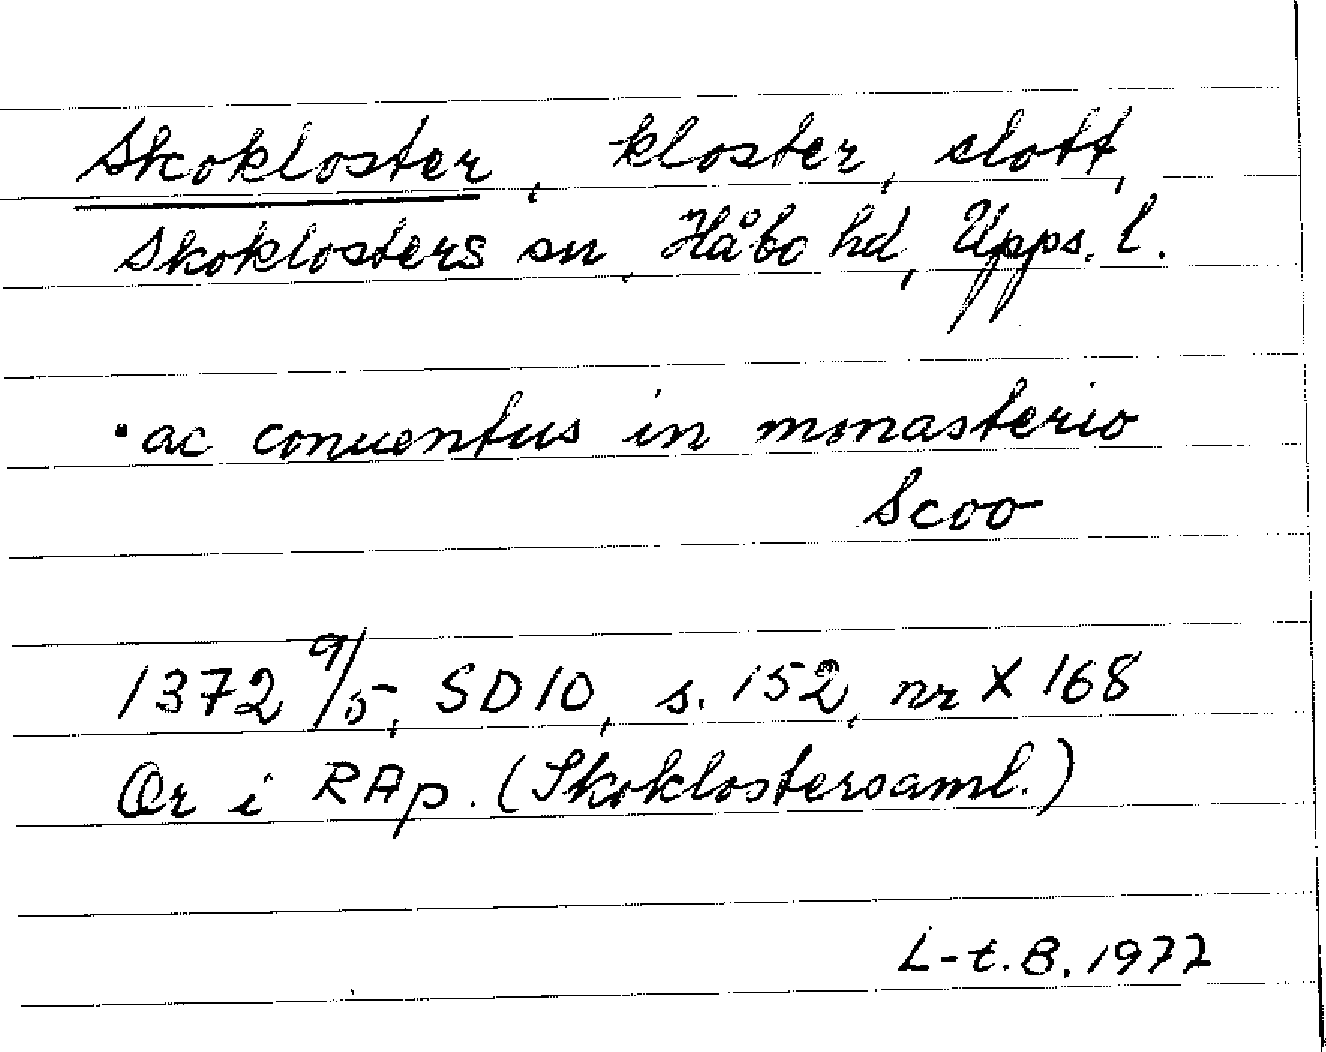 Skokloster, kloster, slott,
Skoklosters sn, Håbo hd, Upps. l.
ac conuentus in monasterio
Scoo
1372 9/5, SD 10, s. 152, nr X 168
Or i RAp. (Skoklostersaml.)
L-t. B. 1977